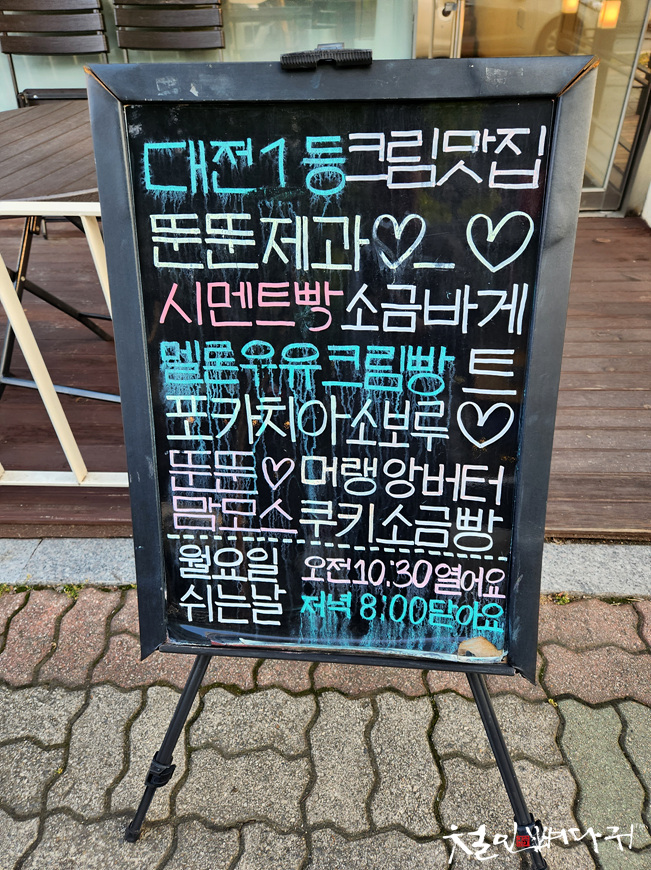 대전1등크림맛집
뚠뚠제과♡_♡
시멘트빵 소금바게
멜론우유크림빵 트
포카치아소보루♡
뚠뚠♡ 머랭앙버터
맘모스 쿠키소금빵
월요일 오전10.30열어요
쉬는날 저녁8:00닫아요